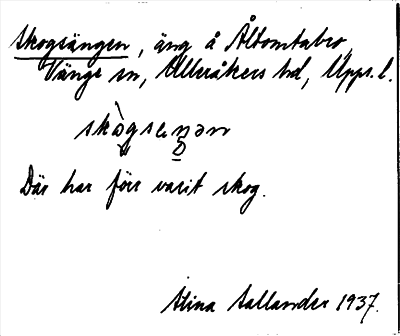 Skogsängen, äng å Åbomtabro,
Vänge sn, Ulleråkers hd, Upps. l.
skògsɛŋən
Där har förr varit skog.
Stina Sallander 1937.